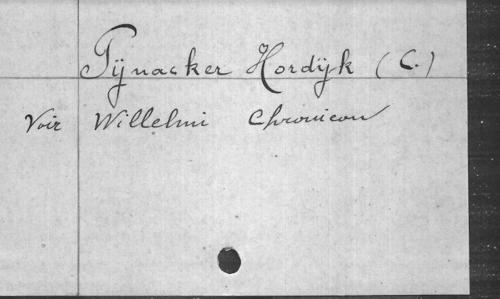 Pijnacker Hordijk (C.)
Voir Willelmi Chronicon